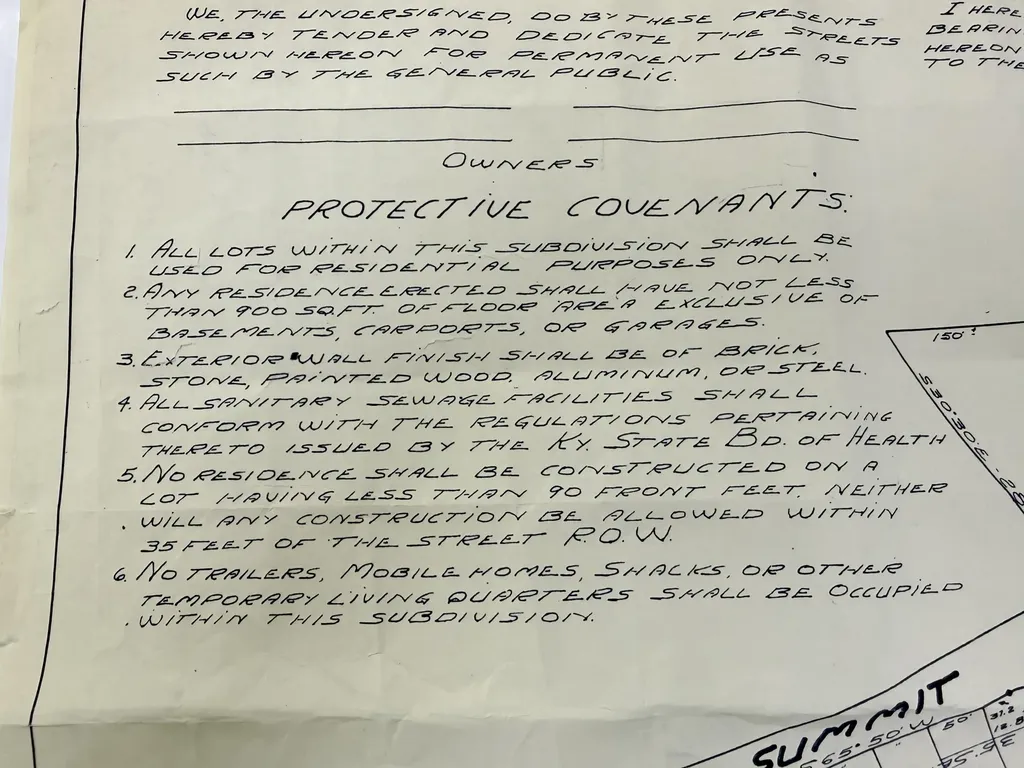 WE, THE UNDERSIGNED, DO BY THESE PRESENTS
HEREBY TENDER AND DEDICATE THE STREETS
SHOWN HEREON FOR PERMANENT USE AS
SUCH BY THE GENERAL PUBLIC.
I HERE
BEARIN
HEREON
TO THE
OWNERS
PROTECTIVE COVENANTS:
1. ALL LOTS WITHIN THIS SUBDIVISION SHALL BE
USED FOR RESIDENTIAL PURPOSES ONLY.
2. ANY RESIDENCE ERECTED SHALL HAVE NOT LESS
THAN 900 SQ.FT. OF FLOOR AREA EXCLUSIVE OF
BASEMENTS, CARPORTS, OR GARAGES.
3. EXTERIOR WALL FINISH SHALL BE OF BRICK,
STONE, PAINTED WOOD, ALUMINUM, OR STEEL.
4. ALL SANITARY SEWAGE FACILITIES SHALL
CONFORM WITH THE REGULATIONS PERTAINING
THERETO ISSUED BY THE KY. STATE BD. OF HEALTH
5. NO RESIDENCE SHALL BE CONSTRUCTED ON A
LOT HAVING LESS THAN 90 FRONT FEET. NEITHER
WILL ANY CONSTRUCTION BE ALLOWED WITHIN
35 FEET OF THE STREET R.O.W.
6. NO TRAILERS, MOBILE HOMES, SHACKS, OR OTHER
TEMPORARY LIVING QUARTERS SHALL BE OCCUPIED
WITHIN THIS SUBDIVISION.
150'
S 30·30 E
SUMMIT
S 65·50 W
50'
31.2